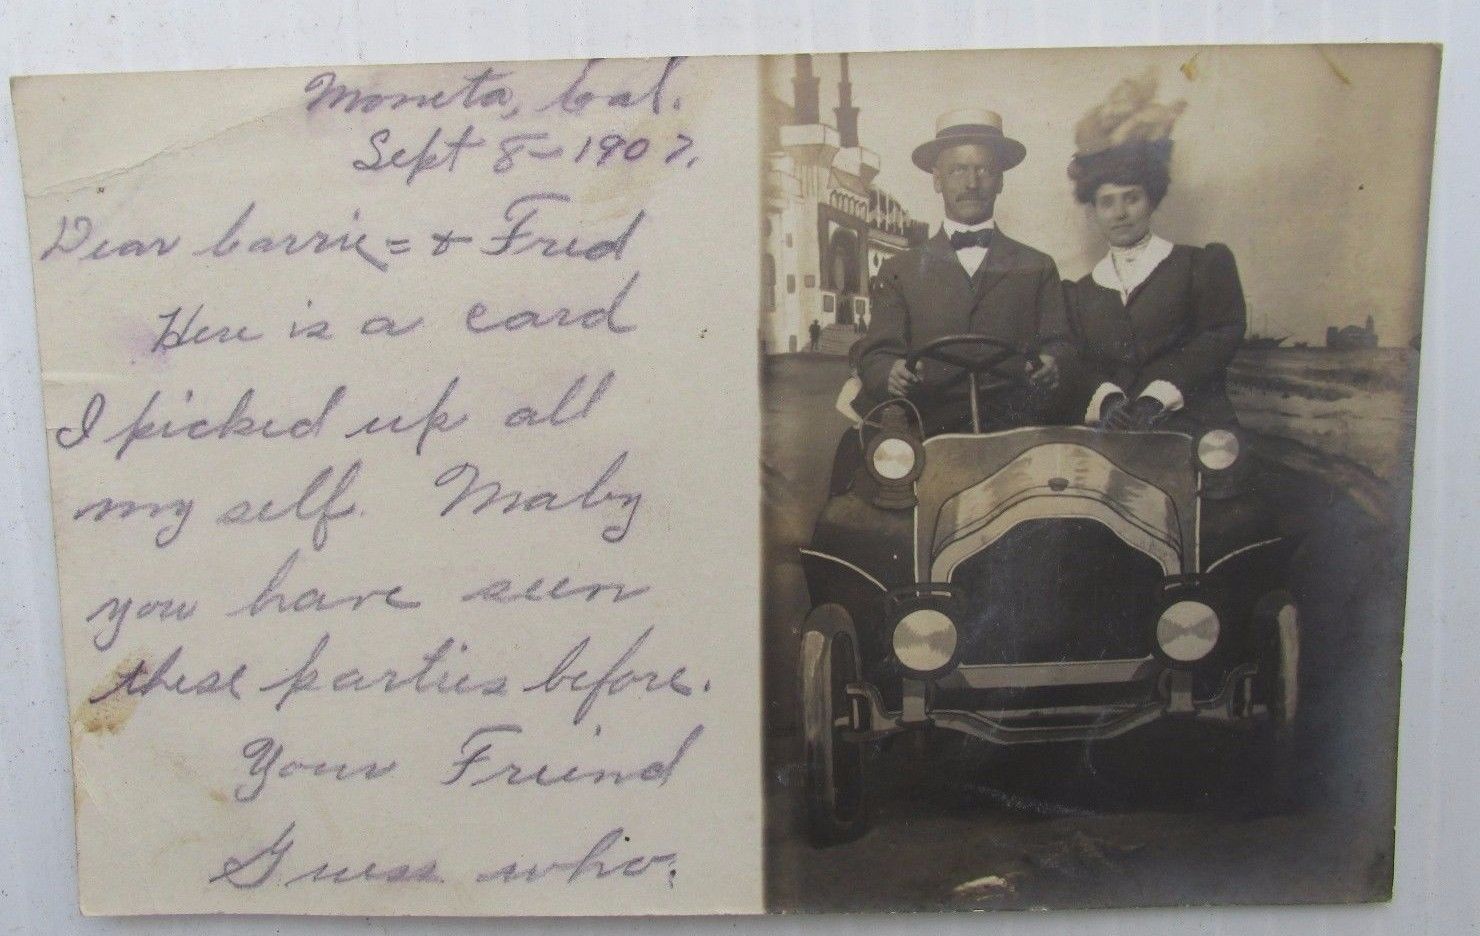 Moneta, Cal.
Sept 8 – 1907.
Dear Carrie = & Fred
Here is a card
I picked up all
my self. Maby
you have seen
these parties before.
Your Friend
Guess who.